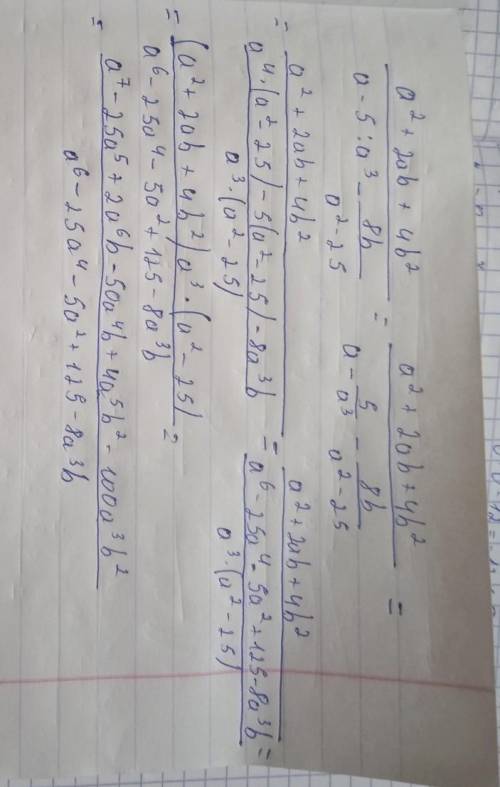 a² + 2ab + 4b² / (a - 5 : a³ - 8b / (a² - 25)) = a² + 2ab + 4b² / (a - 5/a³ - 8b / (a² - 25)) =
= a² + 2ab + 4b² / (a⁴ · (a² - 25) - 5(a² - 25) - 8a³b / a³ · (a² - 25)) = a² + 2ab + 4b² / (a⁶ - 25a⁴ - 5a² + 125 - 8a³b / a³ · (a² - 25)) =
= (a² + 2ab + 4b²) a³ · (a² - 25) / a⁶ - 25a⁴ - 5a² + 125 - 8a³b =
= a⁷ - 25a⁵ + 2a⁶b - 50a⁴b + 4a⁵b² - 100a³b² / a⁶ - 25a⁴ - 5a² + 125 - 8a³b